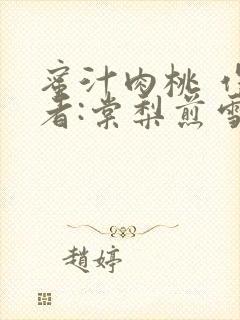 蜜汁肉桃 作
者:棠梨煎雪
趙婷